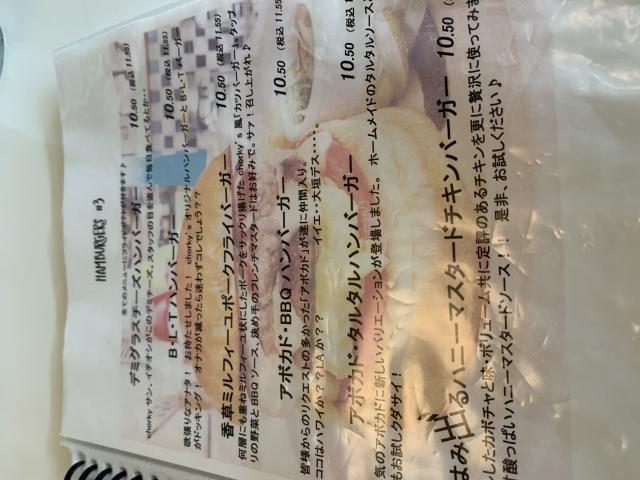 HAMBURGERS #3
全てのメニューにフライドポテトが付きます♪
デミグラスチーズハンバーガー 10.50 (税込 11.55)
chorkyサン、イチオシがこのデミチーズ、スタッフの目を盗んで毎日食べてるとか・・
B・L・Tハンバーガー 10.50 (税込 11.55)
欲張りなアナタ! お待たせしました! chorky's オリジナルハンバーガーとB・L・Tバーガー
がドッキング! オナカが減ったら迷わずコレでしょう??
香草ミルフィーユポークフライバーガー 10.50 (税込 11.55)
何層にも重ねミルフィーユ状にしたポークをサックリ揚げた chorky's 風「カツバーガー」。タップ
リの野菜とBBQソース、決め手のフレンチマスタードはお好みで。サァ!召し上がれ♪
アボカド・BBQハンバーガー 10.50 (税込 11.55
皆様からのリクエストの多かった「アボカド」が遂に仲間入り。
ココはハワイか??LAか?? イイエ・・大垣デス・・・・。
アボカド・タルタルハンバーガー 10.50 (税込
気のアボカドに新しいバリエーションが登場しました。 ホームメイドのタルタルソース
もお試しクダサイ!
はみ出るハニーマスタードチキンバーガー 10.50 (
したカボチャと味・ボリューム共に定評のあるチキンを更に贅沢に使ってみま
甘酸っぱいハニーマスタードソース!! 是非、お試しください♪